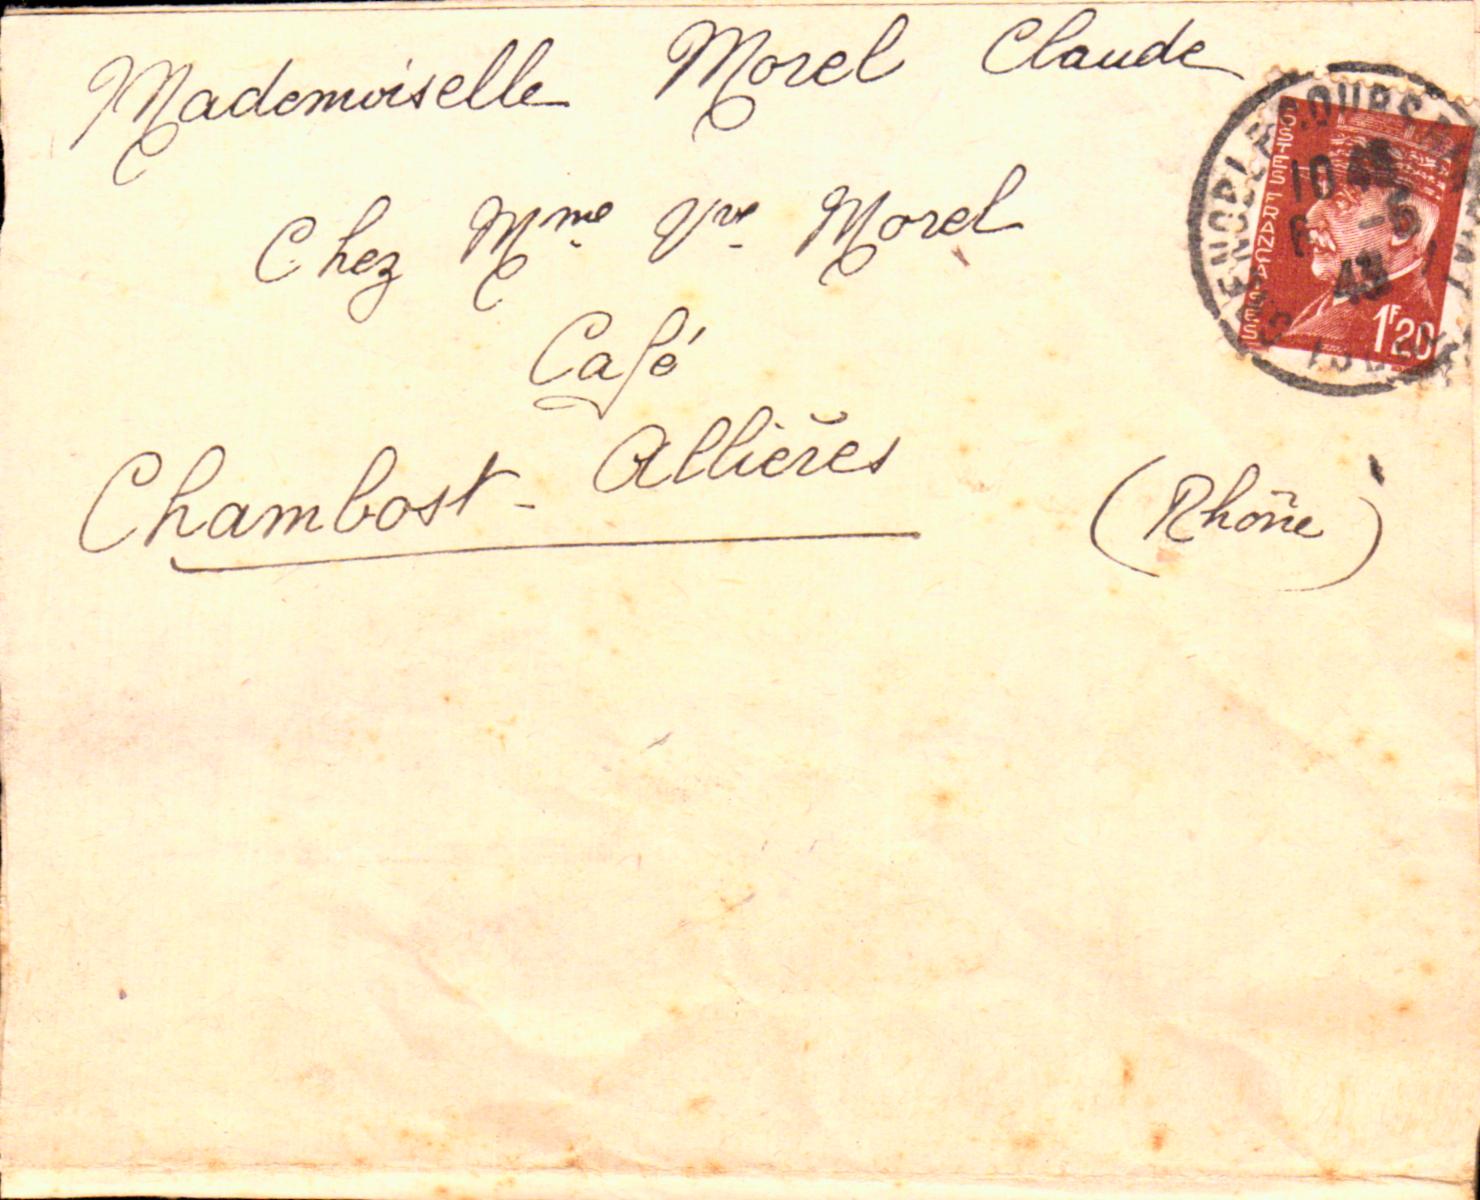 Mademoiselle Morel Claude
Chez Mme Vve Morel
Café
Chambost-Allières (Rhône)
GRENOBLE COURS
10
6 -5
43
POSTES FRANÇAISES
1F20
ISÈRE